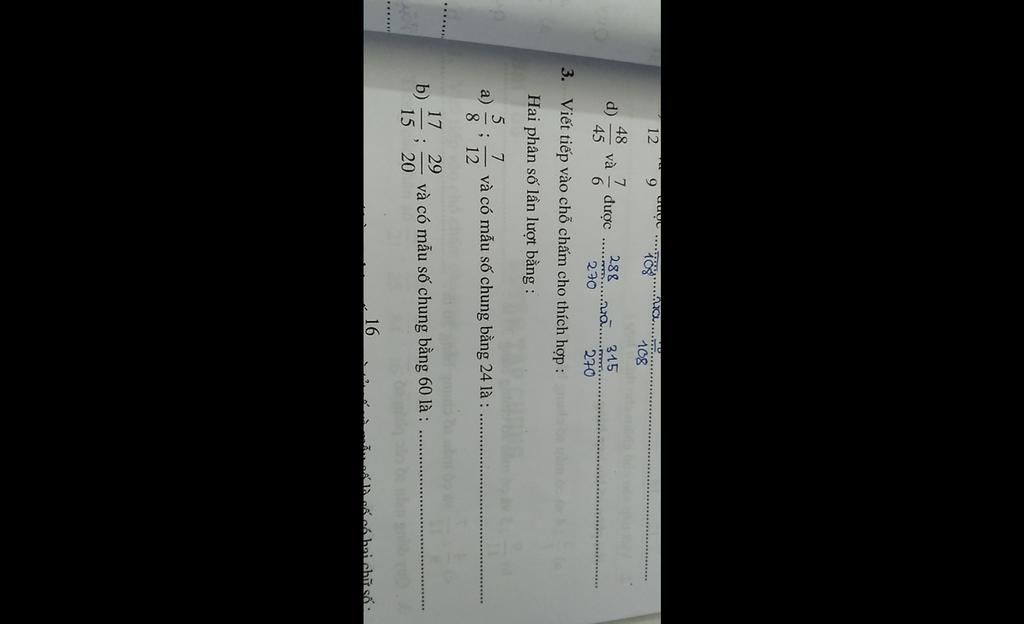 12 9 108 108
d) 48/45 và 7/6 được 288/270 và 315/270
3. Viết tiếp vào chỗ chấm cho thích hợp :
Hai phân số lần lượt bằng :
a) 5/8 ; 7/12 và có mẫu số chung bằng 24 là : ........
b) 17/15 ; 29/20 và có mẫu số chung bằng 60 là : ........
16